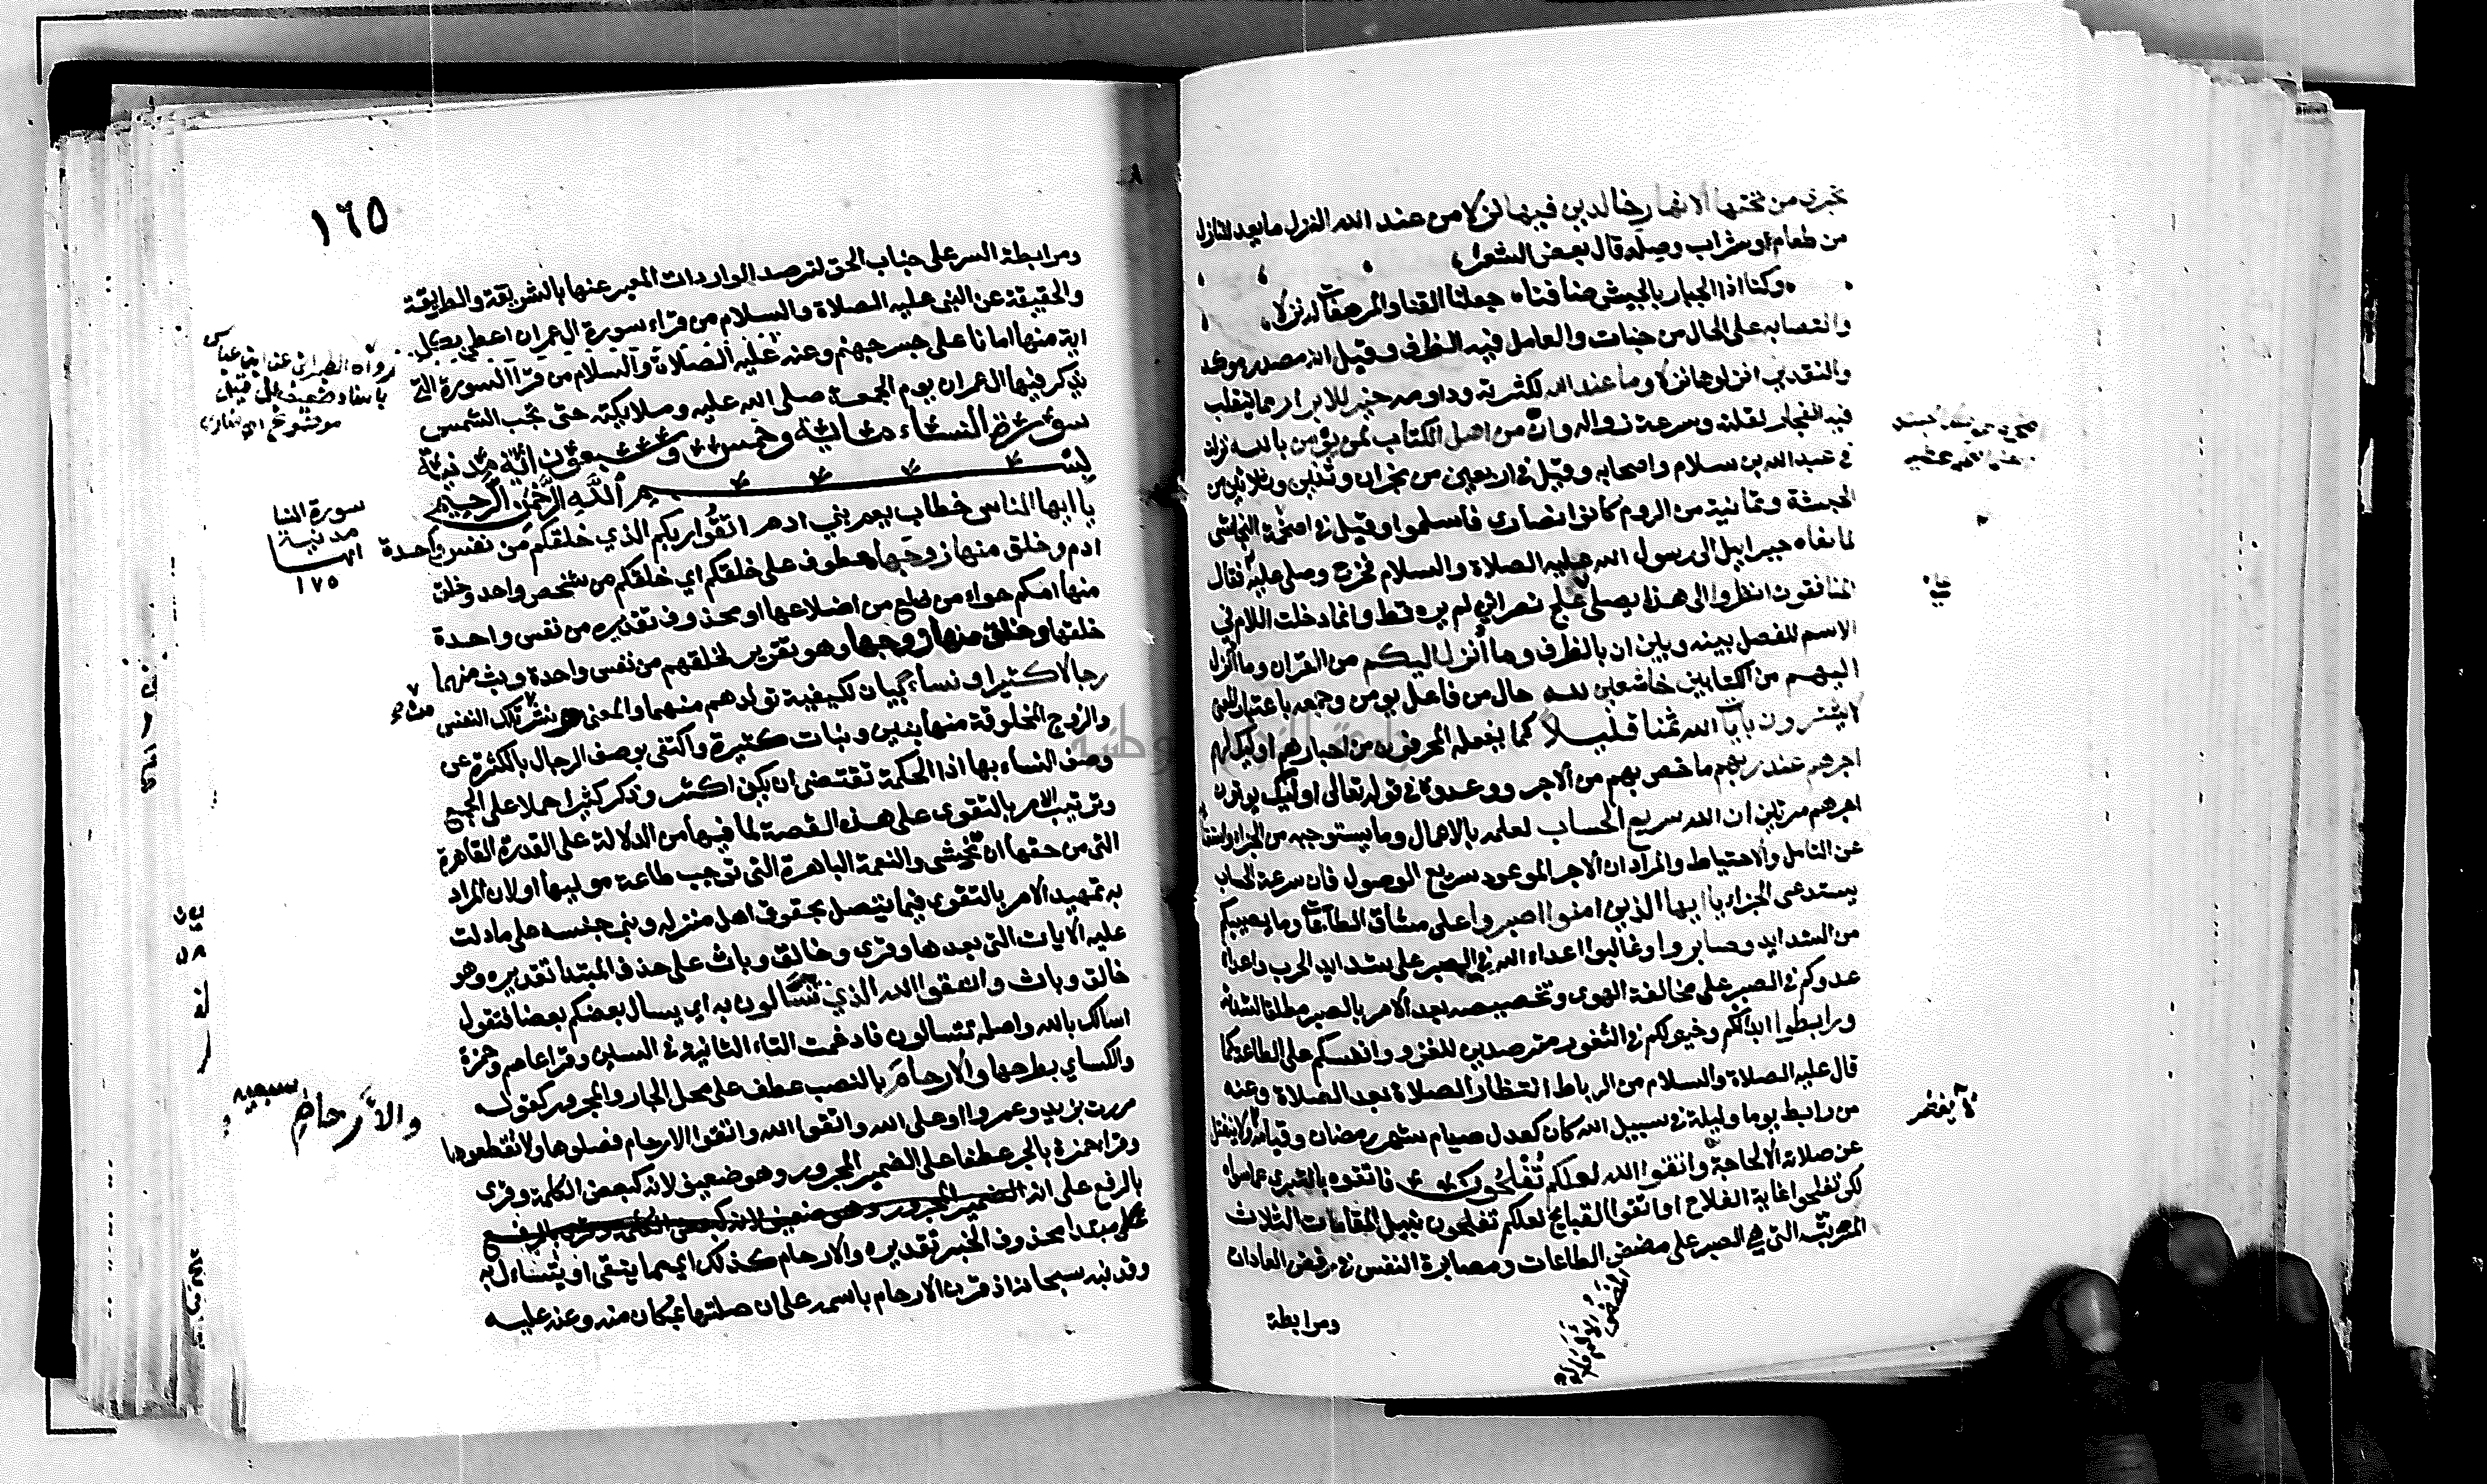 تجري من تحتها الانهار خالدين فيها نزلا من عند الله النزل ما يعد للنازل
من طعام او شراب وصلة قال بعض الشعراء
وكنا اذا الجبار بالجيش ضافنا جعلنا القنا والمرهفات له نزلا
وانتصابه على الحال من جنات والعامل فيه الظرف وقيل انه مصدر موكد
والتقدير انزلوها نزلا وما عند الله لكثرته ودوامه خير للابرار مما يتقلب
فيه الفجار لقلته وسرعة زواله وان من اهل الكتاب لمن يؤمن بالله نزلت
في عبد الله بن سلام واصحابه وقيل في اربعين من نجران وثنين وثلاثين من
الحبشة وثمانية من الروم كانوا نصارى فاسلموا وقيل في اصحمة النجاشي
لما نعاه جبرايل الى رسول الله عليه الصلاة والسلام فخرج وصلى عليه فقال
المنافقون انظروا الى هذا يصلي على علج نصراني لم يره قط وانما دخلت اللام في
الاسم للفصل بينه وبين ان بالظرف وما انزل اليكم من القران وما انزل
اليهم من الكتابين خاشعين لله حال من فاعل يومن وجمعه باعتبار المعنى
لا يشترون بايات الله ثمنا قليلا كما يفعله المحرفون من احبارهم اوليك لهم
اجرهم عند ربهم ما خص بهم من الاجر ووعدوه في قوله تعالى اوليك يوتون
اجرهم مرتين ان الله سريع الحساب لعلمه بالاعمال وما يستوجبه من الجزاء واستغنائه
عن التامل والاحتياط والمراد ان الاجر الموعود سريع الوصول فان سرعة الحساب
يستدعي الجزاء يا ايها الذين امنوا اصبروا على مشاق الطاعات وما يصيبكم
من الشدايد وصابروا وغالبوا اعداء الله في الصبر على شدايد الحرب واعدا
عدوكم في الصبر على مخالفة الهوى وتخصيصه بعد الامر بالصبر مطلقا لشدته
ورابطوا ابدانكم وخيولكم في الثغور مترصدين للغزو وانفسكم على الطاعة كما
قال عليه الصلاة والسلام من الرباط انتظار الصلاة بعد الصلاة وعنه
من رابط يوما وليلة في سبيل الله كان كعدل صيام شهر رمضان وقيامه ولا ينفتل
لا يفطر
عن صلاته الا لحاجة واتقوا الله لعلكم تفلحون فاتقوه بالتبري عما سواه
لكي تفلحوا غاية الفلاح او اتقوا القبايح لعلكم تفلحون بنيل المقامات الثلاث
المرتبة التي هي الصبر على مضض الطاعات ومصابرة النفس في رفض العادات
ومرابطة
١٦٥
ومرابطة السر على جناب الحق لترصد الواردات المعبر عنها بالشريعة والطريقة
والحقيقة عن النبي عليه الصلاة والسلام من قراء سورة ال عمران اعطي بكل
اية منها امانا على جسر جهنم وعنه عليه الصلاة والسلام من قرا السورة التي
يذكر فيها ال عمران يوم الجمعة صلى الله عليه وملايكته حتى تجب الشمس
رواه الطبراني عن ابن عباس
سورة النساء ماية وخمس وسبعون اية مدنية
بسم الله الرحمن الرحيم
سورة النسا
مدنية
ايها
١٧٥
يا ايها الناس خطاب يعم بني ادم اتقوا ربكم الذي خلقكم من نفس واحدة
ادم وخلق منها زوجها عطوف على خلقكم اي خلقكم من شخص واحد وخلق
منها امكم حواء من ضلع من اضلاعها او محذوف تقديره من نفس واحدة
خلقها وخلق منها زوجها وهو تقرير لخلقهم من نفس واحدة وبث منهما
رجالا كثيرا ونساء بيان لكيفية تولدهم منهما والمعنى ونشر من تلك النفس
والزوج المخلوقة منها بنين وبنات كثيرة واكتفى بوصف الرجال بالكثرة عن
وصف النساء بها اذا الحكمة تقتضي ان يكن اكثر وذكر كثيرا حملا على الجمع
وترتيب الامر بالتقوى على هذه القصة لما فيها من الدلالة على القدرة القاهرة
التي من حقها ان تخشى والنعمة الباهرة التي توجب طاعة موليها او لان المراد
به تمهيد الامر بالتقوى فيما يتصل بحقوق اهل منزله وبني جنسه على ما دلت
عليه الايات التي بعدها وقرى وخالق وباث على حذف المبتدا تقديره وهو
خالق وباث واتقوا الله الذي تسالون به اي يسال بعضكم بعضا فتقول
اسالك بالله واصله تتسالون فادغمت التاء الثانية في السين وقرا عاصم وحمزة
والكساي بطرحها والارحام بالنصب عطف على محل الجار والمجرور كقولك
والارحام
مررت بزيد وعمروا او على الله واتقوا الله واتقوا الارحام فصلوها ولا تقطعوها
وقراء حمزة بالجر عطفا على الضمير المجرور وهو ضعيف لانه كبعض الكلمة وقرى
بالرفع على انه الضمير المجرور وهو ضعيف لانه كبعض الكلمة وقرى بالرفع
مبتدا محذوف الخبر تقديره والارحام كذلك اي مما يتقى او يتساءل به
وقد نبه سبحانه اذ قرن الارحام باسمه على ان صلتها بمكان منه وعنه عليه